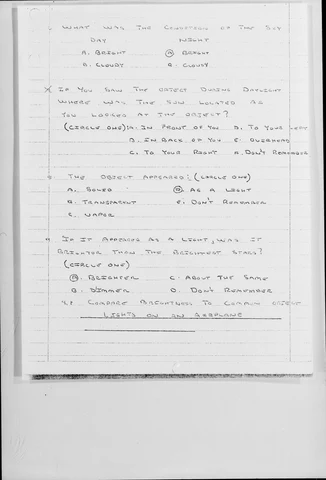 WHAT WAS THE CONDITION OF THE SKY
DAY NIGHT
A. BRIGHT A. BRIGHT
B. CLOUDY B. CLOUDY
IF YOU SAW THE OBJECT DURING DAYLIGHT
WHERE WAS THE SUN LOCATED AS
YOU LOOKED AT THE OBJECT?
(CIRCLE ONE) A. IN FRONT OF YOU D. TO YOUR LEFT
B. IN BACK OF YOU E. OVERHEAD
C. TO YOUR RIGHT F. DON'T REMEMBER
THE OBJECT APPEARED: (CIRCLE ONE)
A. SOLID D. AS A LIGHT
B. TRANSPARENT E. DON'T REMEMBER
C. VAPOR
IF IT APPEARED AS A LIGHT, WAS IT
BRIGHTER THAN THE BRIGHTEST STARS?
(CIRCLE ONE)
A. BRIGHTER C. ABOUT THE SAME
B. DIMMER D. DON'T REMEMBER
COMPARE BRIGHTNESS TO COMMON OBJECT
LIGHTS ON AN AIRPLANE